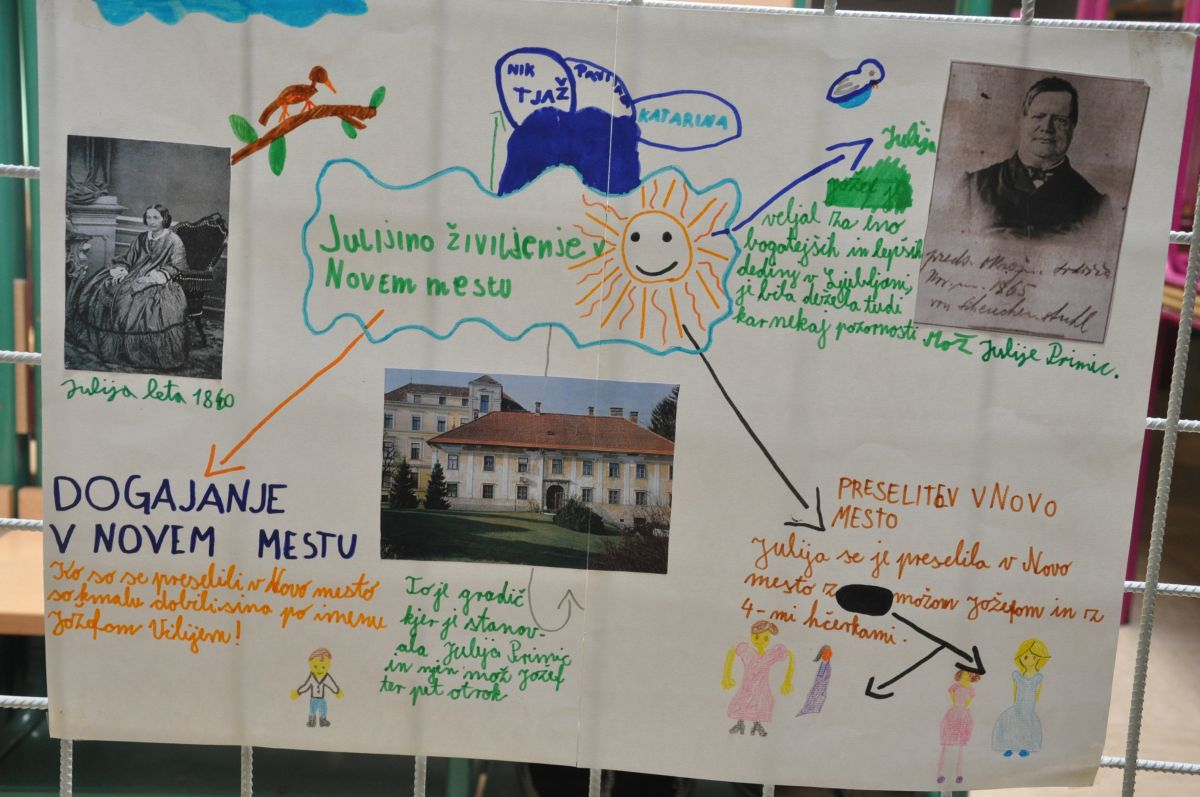 NIK
TJAŽ
KATARINA
JULIJINO ŽIVILJENJE V
NOVEM MESTU
Julija
veljal za eno
bogatejših in lepših
dediny v Ljubljani,
ji bila dežela tudi
kar nekaj pozornosti
Mož Julije Primic.
1865
Julija leta 1860
DOGAJANJE
V NOVEM MESTU
Ko so se preselili v Novo mesto
so kmalu dobili sina po imenu
Jožefom Vilijem!
To je gradič
kjer ji stanov-
ala Julija Primic
in njen mož Jožef
ter pet otrok
PRESELITEV V NOVO
MESTO
Julija se je preselila v Novo
mesto z možom Jožefom in z
4-mi hčerkami.